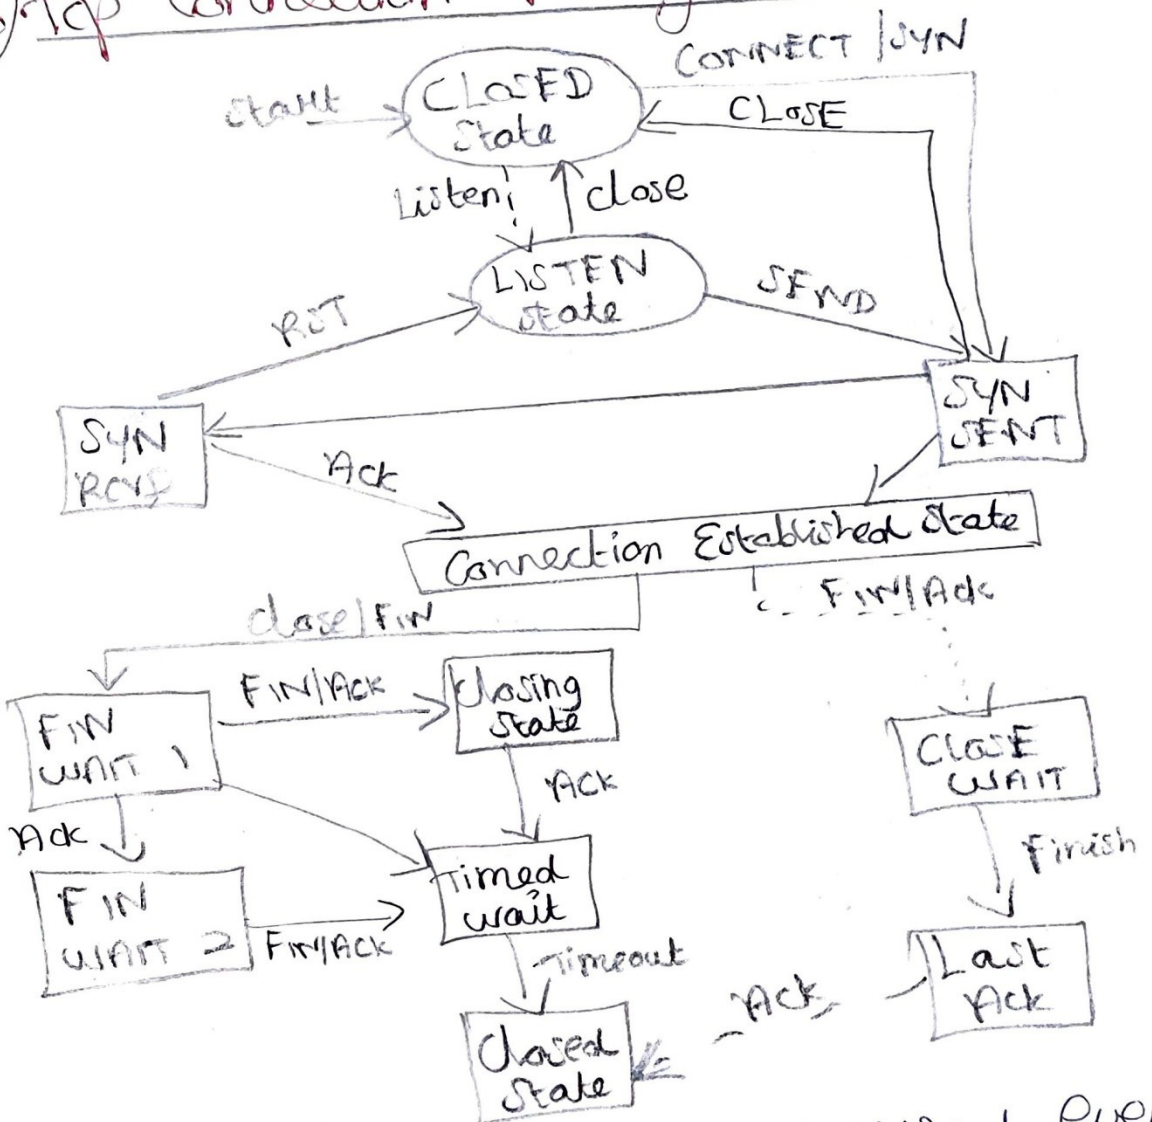 TCP Connection
CONNECT / SYN
start
CLOSED
State
CLOSE
Listen
close
LISTEN
State
SEND
RST
SYN
SENT
SYN
Ack
Connection Established State
close/FIN
FIN/Ack
FIN
WAIT 1
FIN/Ack
Closing
State
CLOSE
WAIT
Ack
ACK
Finish
FIN
WAIT 2
FIN/ACK
Timed
wait
Timeout
Last
Ack
Ack
Closed
State